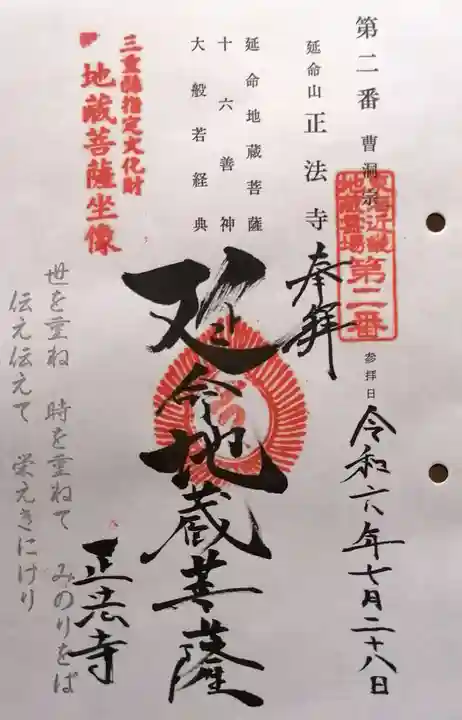 第二番 曹洞宗
東海近畿
地蔵霊場
第二番
参拝日 令和六年七月二十八日
延命山 正法寺
奉拝
延命地蔵菩薩
十六善神
大般若経典
延命地蔵菩薩
三重縣指定文化財
地蔵菩薩坐像
正法寺
世を重ね 時を重ねて みのりをば
伝え伝えて 栄えきにけり